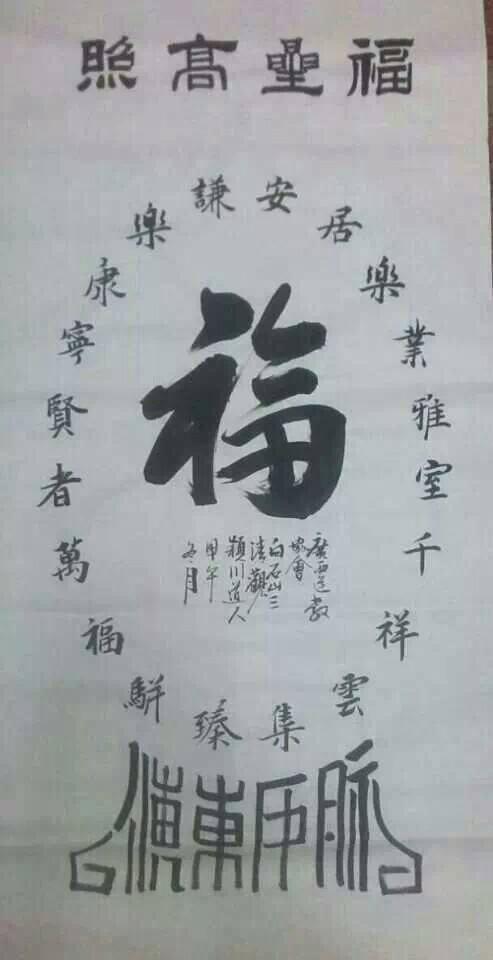 福星高照
安居樂業雅室千祥雲集
謙樂康寧賢者萬福駢臻
福
廣西道教
協會
白石山三
清觀
潁川道人
甲午
冬月